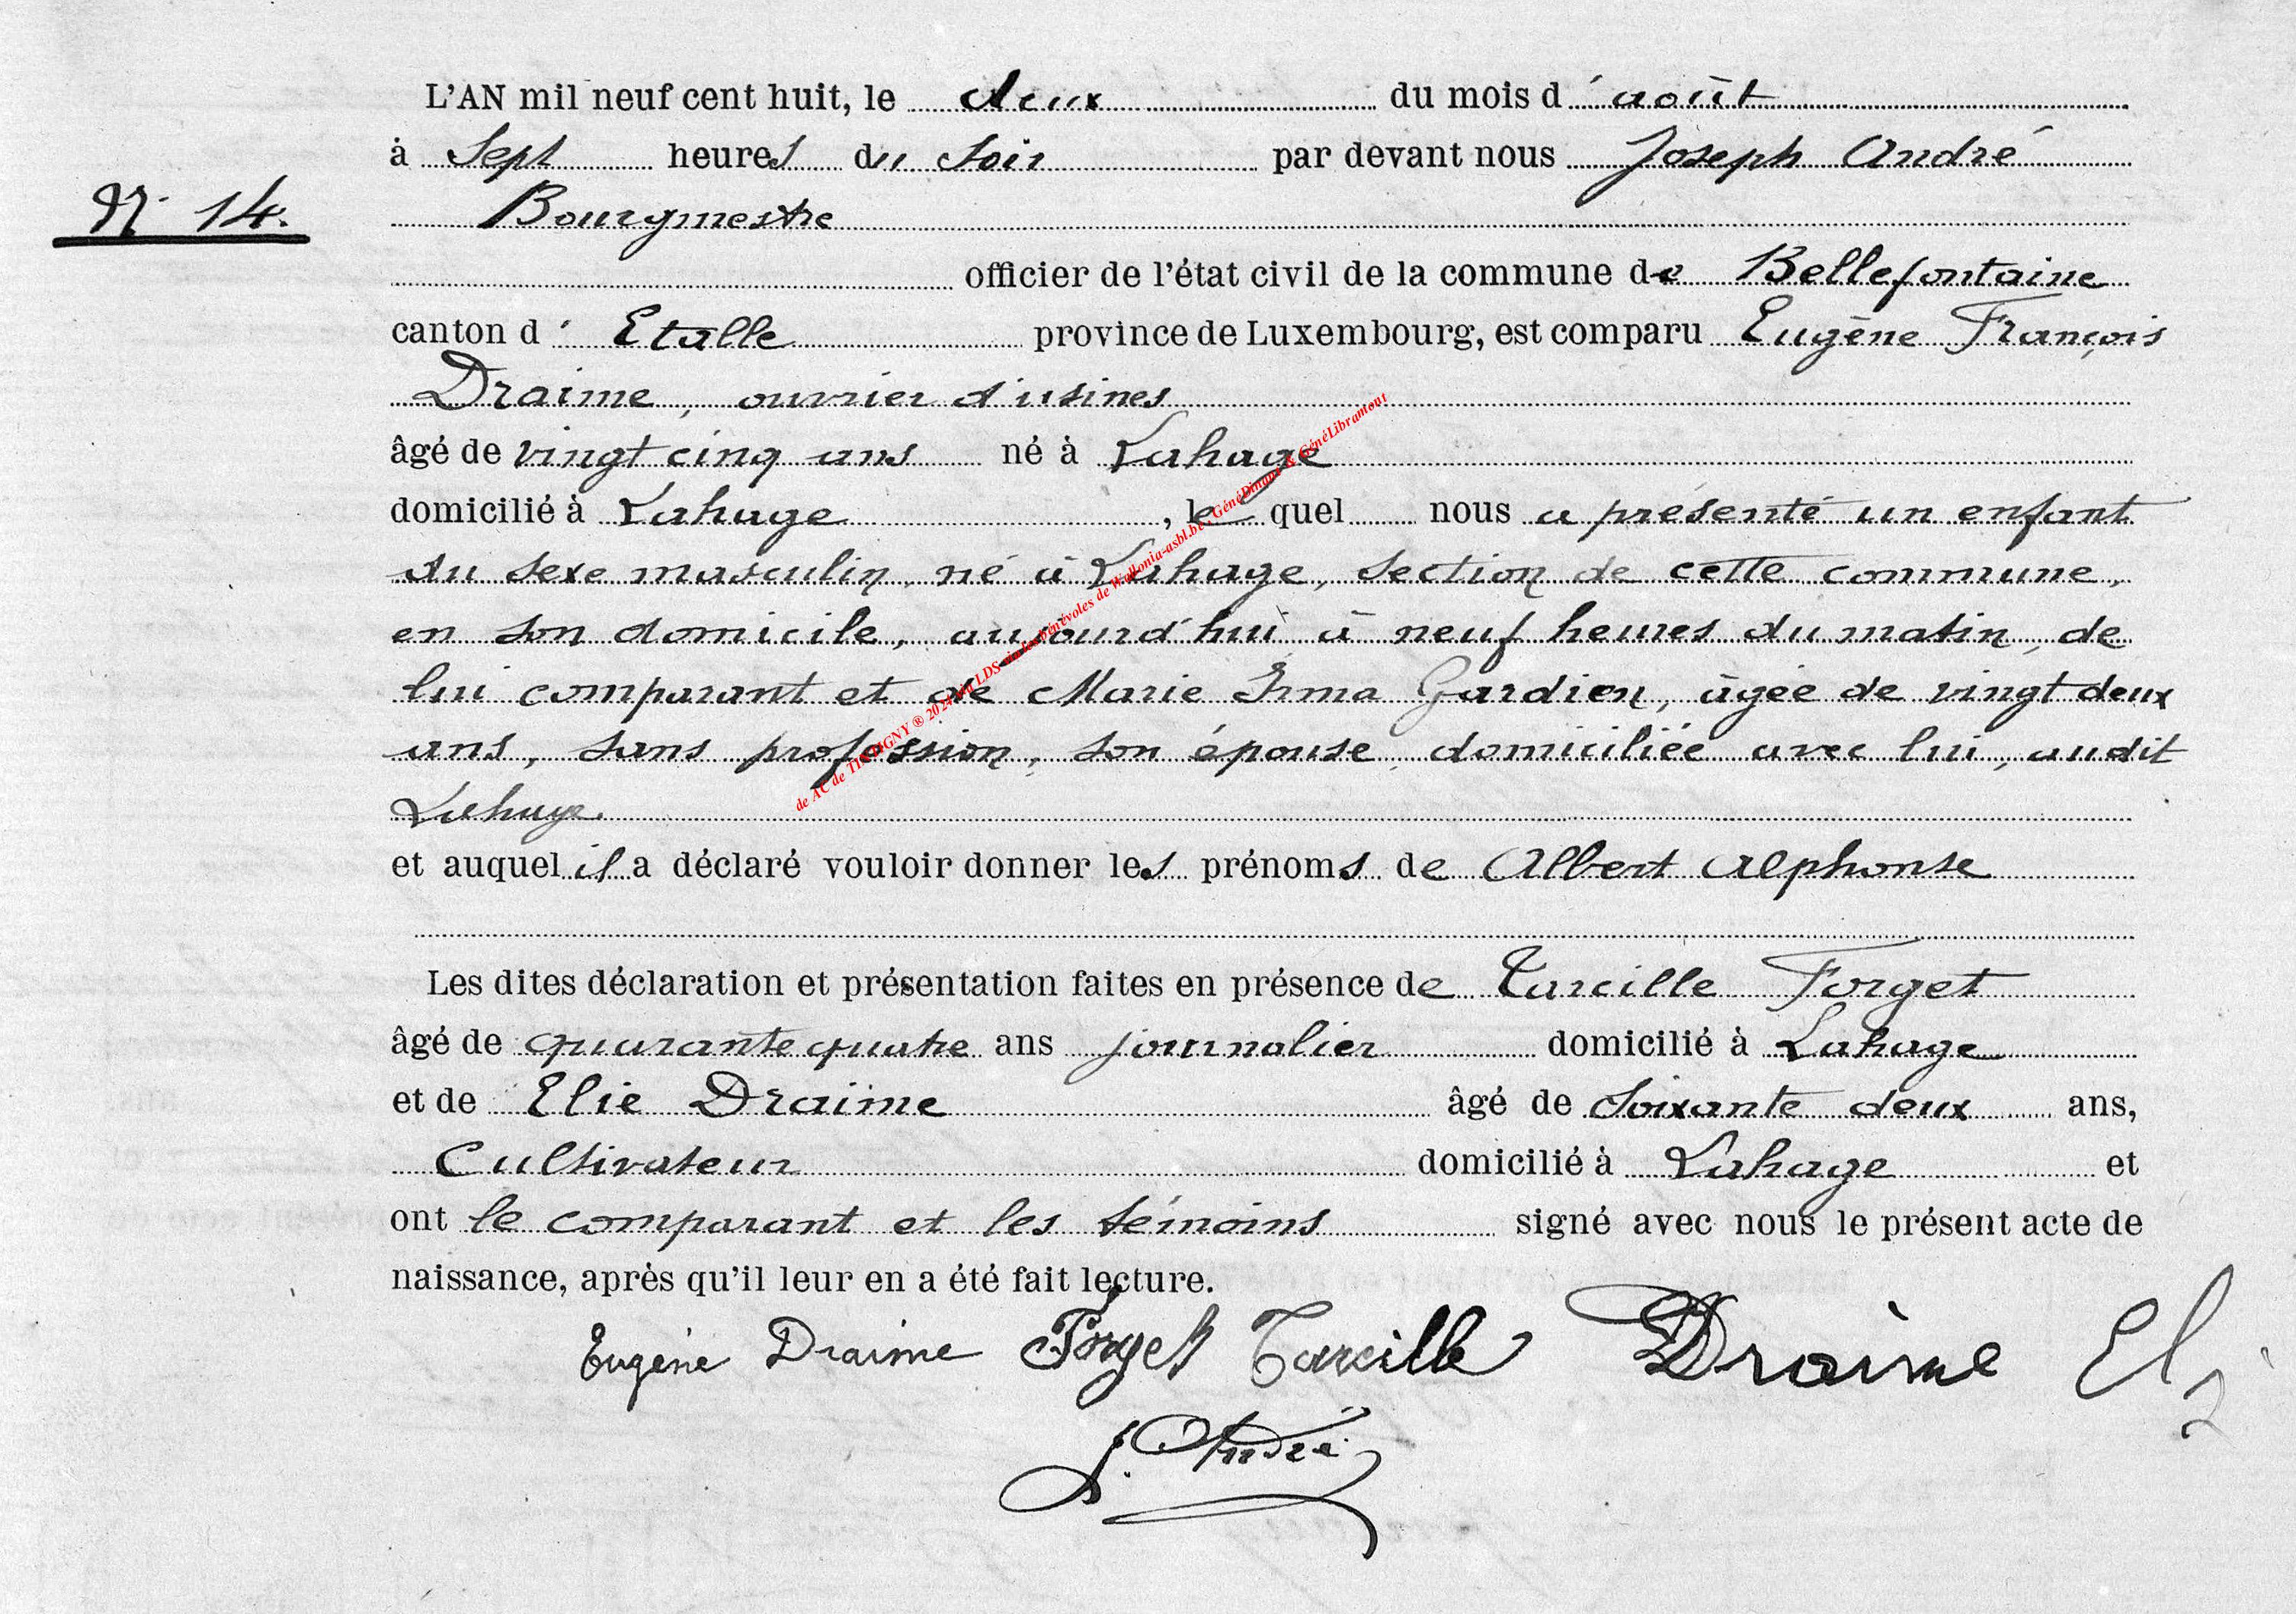 L'AN mil neuf cent huit, le deux du mois d'août
à Sept heures du Soir par devant nous Joseph André
N° 14.
Bourgmestre
officier de l'état civil de la commune de Bellefontaine
canton d'Etalle province de Luxembourg, est comparu Eugène François
Draime, ouvrier d'usines
âgé de vingt cinq ans né à Lahage
domicilié à Lahage, lequel nous a présenté un enfant
du sexe masculin, né à Lahage, section de cette commune,
en son domicile, aujourd'hui à neuf heures du matin, de
lui comparant et de Marie Irma Gardien, âgée de vingt deux
ans, sans profession, son épouse, domiciliée avec lui, audit
Lahage.
et auquel il a déclaré vouloir donner les prénoms de Albert Alphonse
Les dites déclaration et présentation faites en présence de Tarcille Forget
âgé de quarante quatre ans journalier domicilié à Lahage
et de Elie Draime âgé de soixante deux ans,
Cultivateur domicilié à Lahage et
ont le comparant et les témoins signé avec nous le présent acte de
naissance, après qu'il leur en a été fait lecture.
Eugène Draime Forget Tarcille Draime Eli
J. André
de AC de TINTIGNY ® 2024 via LDS via les bénévoles de Wallonia-asbl.be, GénéDinant & GénéLibramont